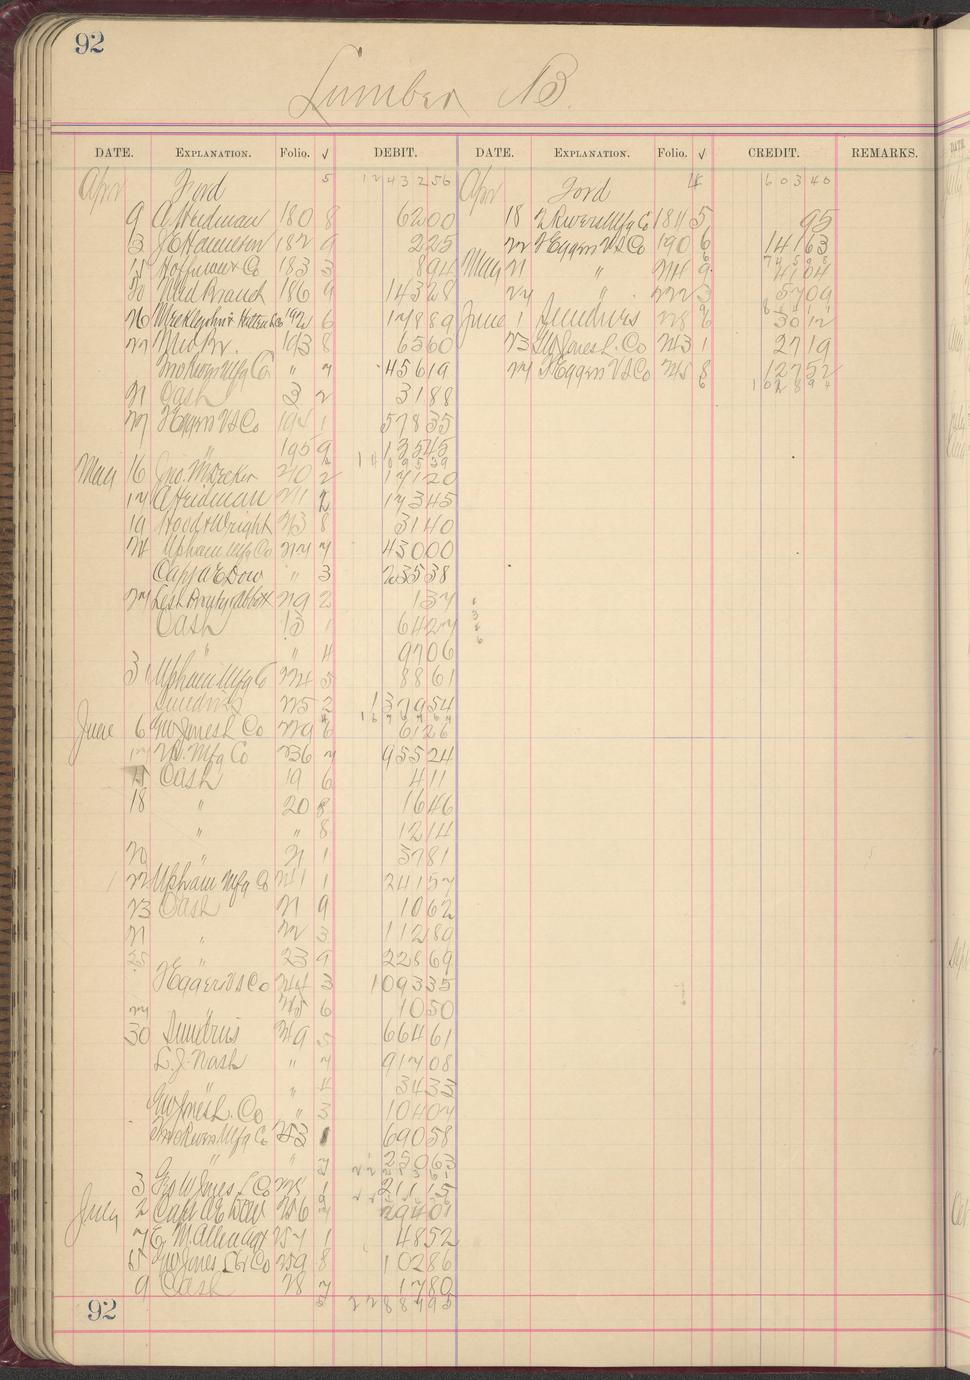 92
Lumber B.
DATE. EXPLANATION. Folio. √ DEBIT. DATE. EXPLANATION. Folio. √ CREDIT. REMARKS.
Apr Ford 5 1243256 Apr Ford 4 60340
9 A Heidman 180 8 6200 18 Rivers Mfg Co 181 5 95
3 J C Hamilton 182 9 225 22 F Eggers V S Co 190 6 14163
Hoffman & Co 183 3 894 May 21 " 214 9 4104
20 Med Branch 186 9 14328 27 " 222 3 5709
26 192 6 17889 June 1 Sundries 228 6 3012
27 Med Br. 193 8 6560 23 Gw Jones L. Co 243 1 2719
Two Rivers Mfg Co " 7 45619 27 F Eggers V S Co 245 8 12752
21 Cash 3 2 3188
27 F Eggers V S Co 194 1 57835
" 195 9 13545
May 16 Jno. M Decker 210 2 17120
17 A Heidman 211 17345
19 Hood & Wright 213 8 3140
24 Upham Mfg Co 217 7 43000
Capt A E Dow " 3 23538
27 Lesh Prouty & Abbott 219 2 137
Cash 13 1 6427
" " 4 9706
31 Upham Mfg Co 224 5 8861
Sundries 225 2 137954
June 6 Gw Jones L Co 229 6 6126
17 V. S. Mfg Co 236 7 95524
15 Cash 19 6 411
18 " 20 8 1646
" " 8 1214
20 " 21 1 3781
22 Upham Mfg Co 241 1 24157
23 Cash 21 9 1062
21 " 22 3 11280
25 " 23 9 22869
F Eggers V S Co 244 3 109335
27 245 6 1050
30 Sundries 249 5 66461
L. J. Nash " 7 91708
" " 4 3433
Gw Jones L. Co " 3 10407
Two Rivers Mfg Co 253 1 69058
" " 7 25063
3 Geo W Jones L Co 1 21115
July 2 Capt A E Dow 256 7 29401
7 E. M. Allen Agt 257 1 4852
15 Gw Jones Lbr Co 259 8 10286
9 Cash 28 7 1780
5 2288795
92